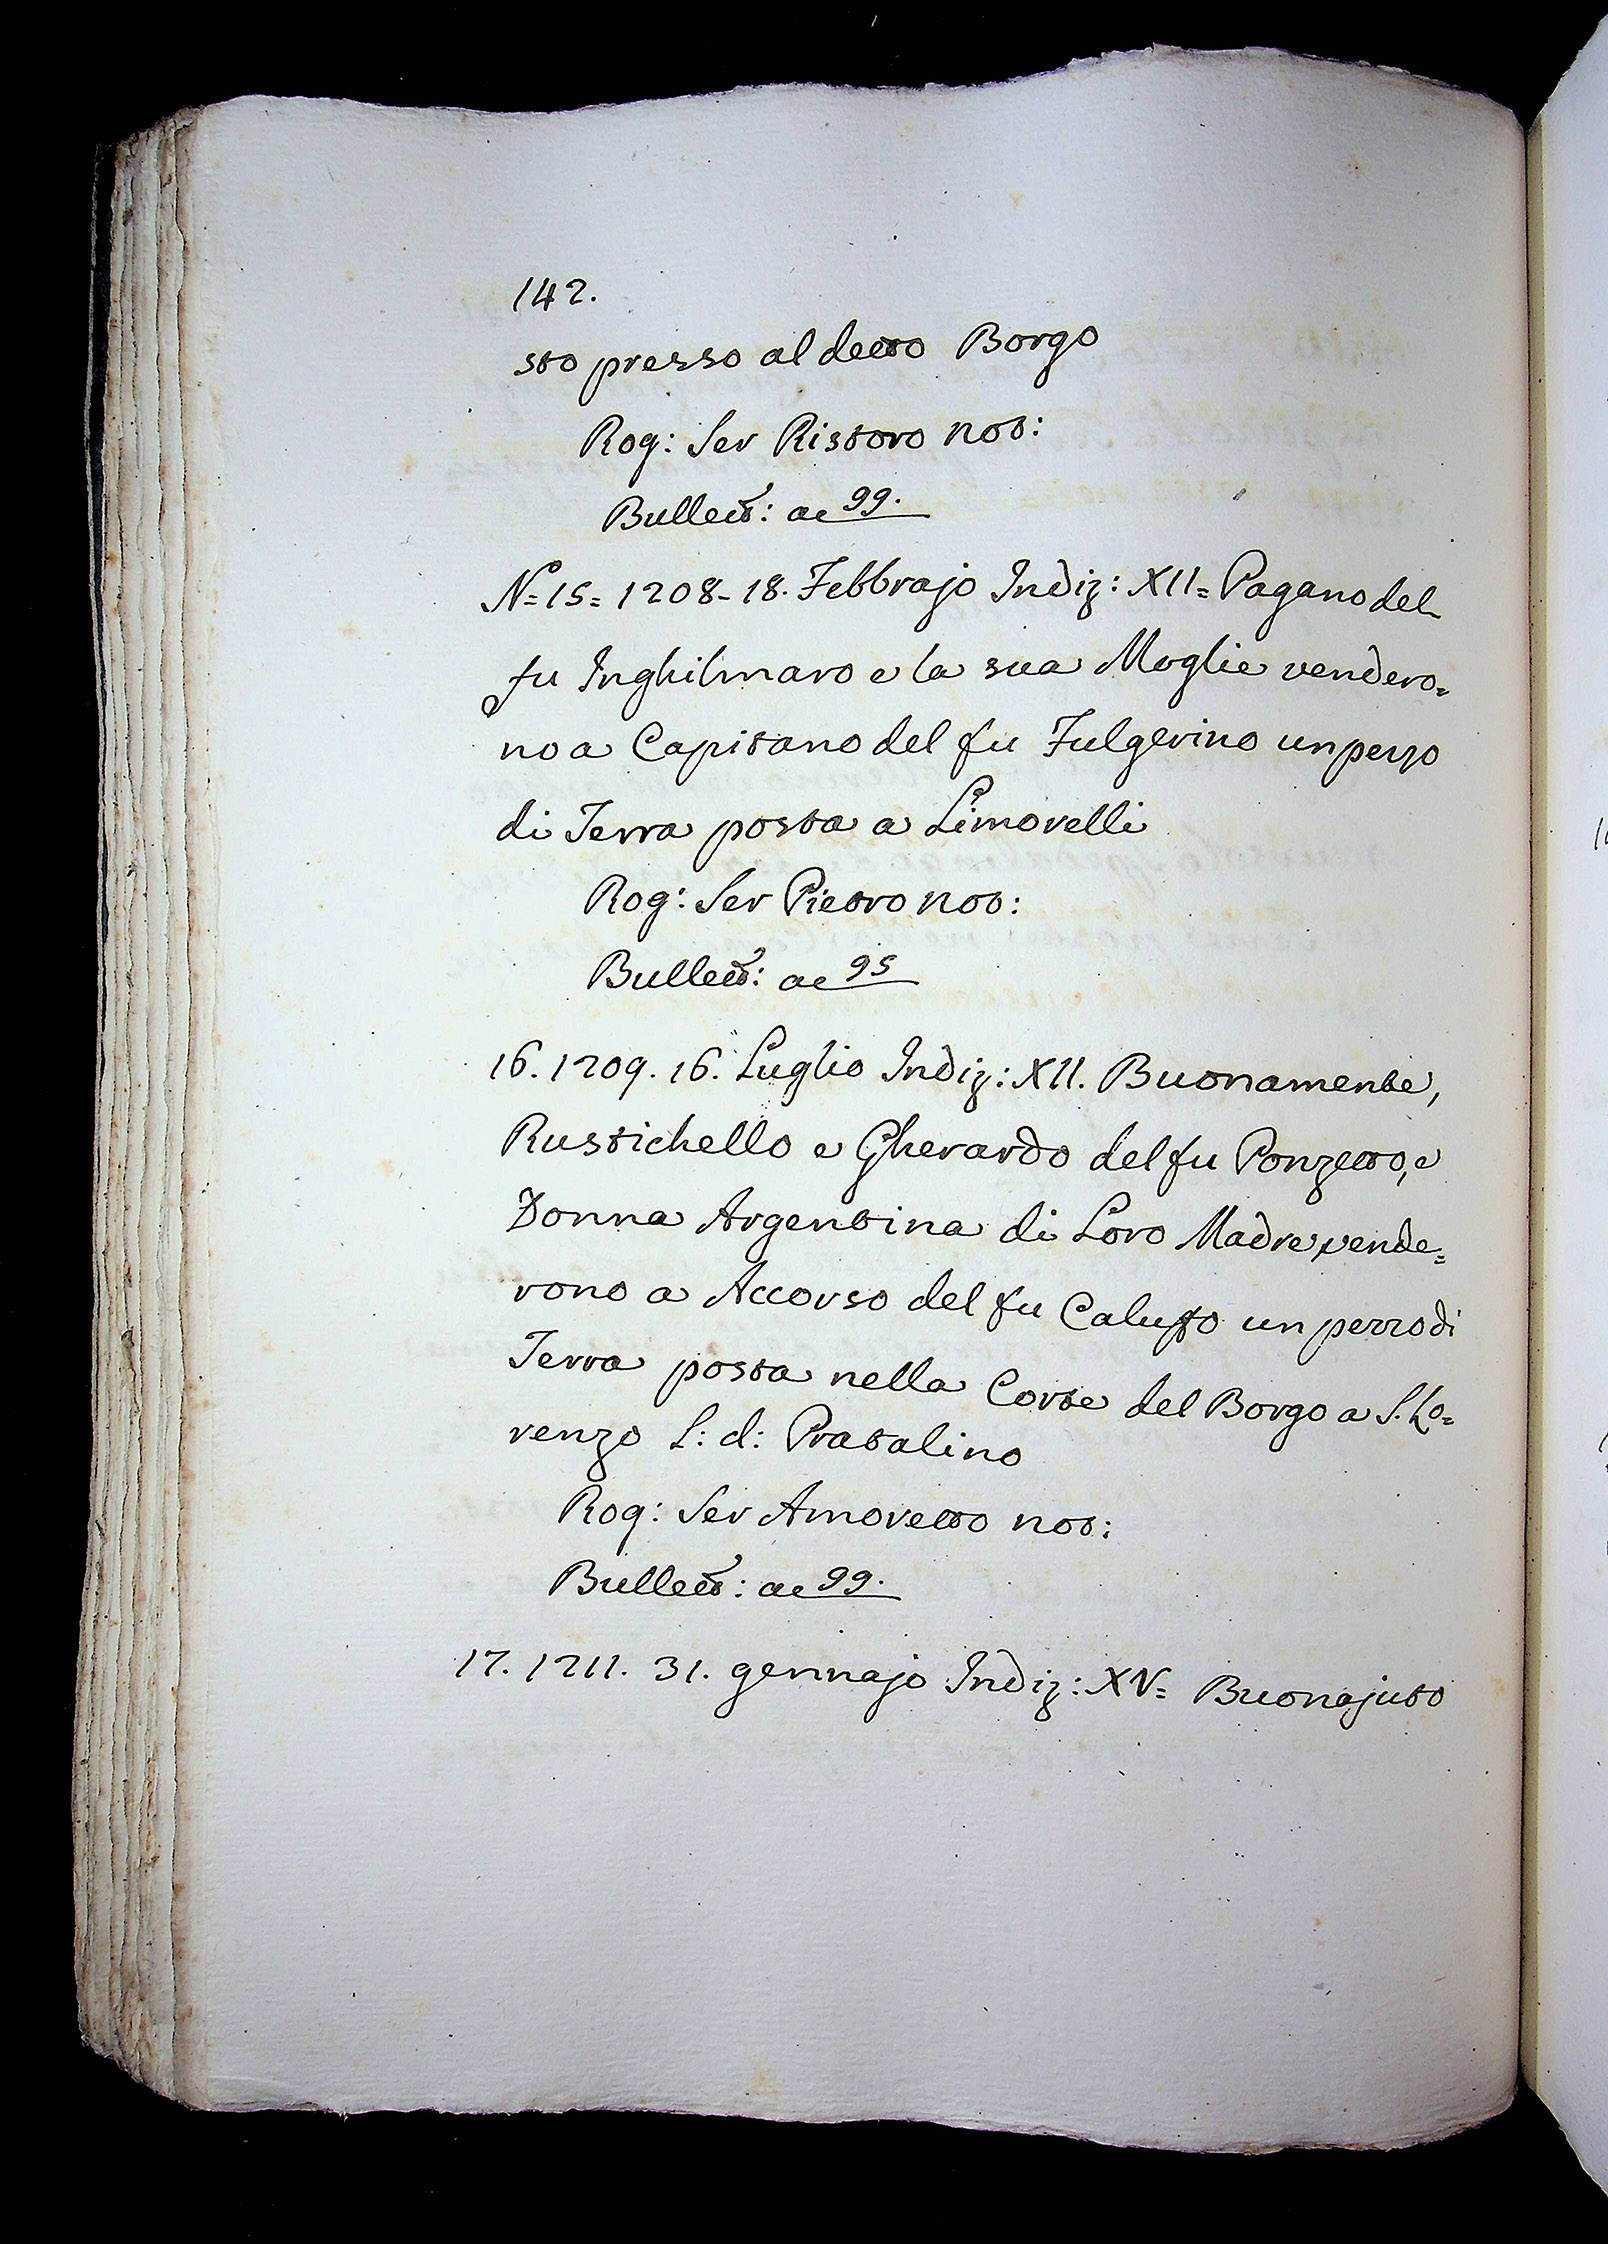 142.
sto presso al detto Borgo
Rog: Ser Ristoro not:
Bullett: ac 99.
N= 15= 1208- 18. Febbrajo Indiz: XII= Pagano del
fu Inghilmaro e la sua Moglie vendero=
no a Capitano del fu Fulgerino un pezzo
di Terra posta a Limorelli
Rog: Ser Pietro not:
Bullett: ac 95
16. 1209. 16. Luglio Indiz: XII. Buonamente,
Rustichello e Gherardo del fu Ponzetto, e
Donna Argentina di Loro Madre vende=
rono a Accorso del fu Caluffo un pezzo di
Terra posta nella Corte del Borgo a S. Lo=
renzo L: d: Pratalino
Rog: Ser Amoretto not:
Bullett: ac 99.
17. 1211. 31. gennajo Indiz: XV= Buonajuto